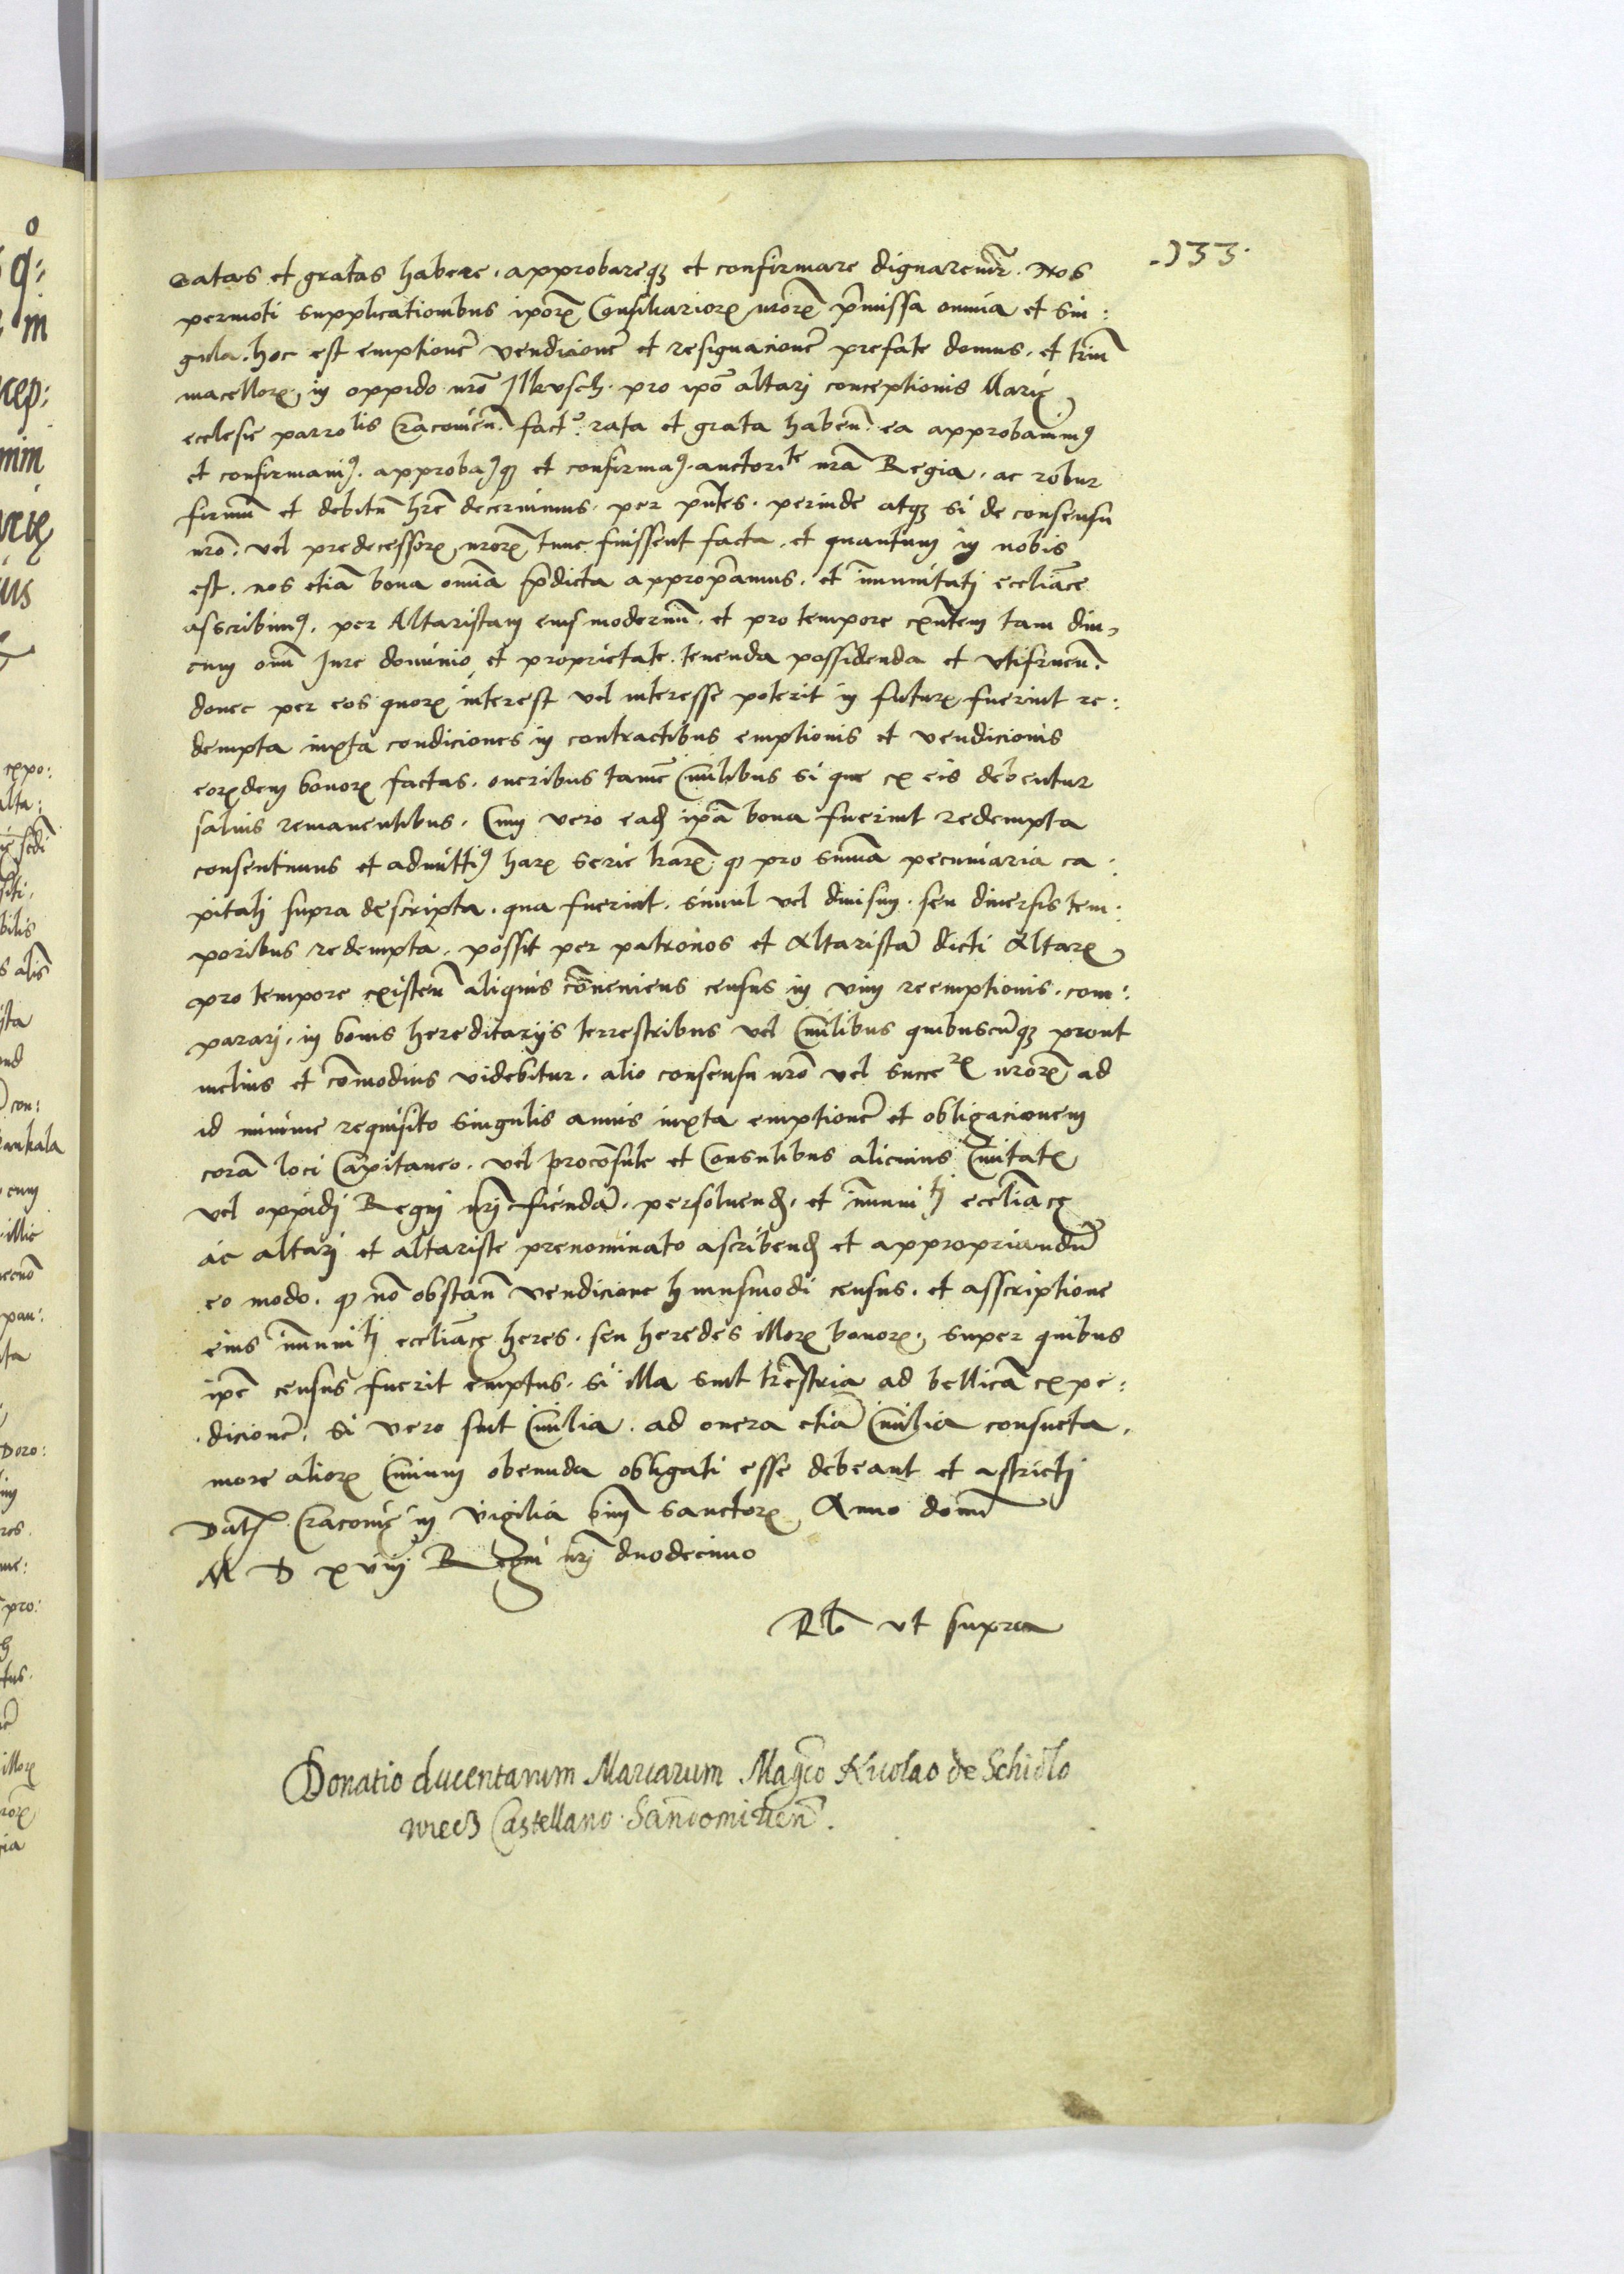 .133.
ratas et gratas habere, approbareqz et confirmare dignaremur. Nos
permoti supplicationibus ipōrꝫ Consiliariorꝫ nrōrꝫ p̄missa omnia et sin:
gula, hoc est emptionē vendicionē et resignacionē prefate domus, et triū
macellorꝫ in oppido nrō Ilkusch, pro ipō altarj conceptionis Marię
eclesie parrolis Cracouieñ. fact. rata et grata habeñ. ea approbauimꝰ
et confirmauimꝰ, approbamꝰqz et confirmamꝰ auctorite nrā Regia, ac robur
firmū et debitū hrē decernimus, per pñtes, perinde atqz si de consensu
nrō, vel predecessorꝫ nrōrꝫ tunc fuissent facta, et quantum in nobis
est, nos etiā bona omīa p̄dicta appropāmus, et īmunitatj eccliāce
asscribimꝰ, per Altaristam eius modernū, et pro tempore exñtem tam diu,
cum omī Iure dominio et proprietate, tenenda possidenda et vtifrueñ.
donec per eos quorꝫ interest vel interesse poterit in futurꝫ fuerint re:
dempta iuxta condiciones in contractibus emptionis et vendicionis
eorꝫdem bonorꝫ factas, oneribus tamē Ciuilibus si que ex eis debentur
saluis remanentibus. Cum vero eadꝫ ipā bona fuerint redempta
consentimus et admittimꝰ harꝫ serie lrārꝫ qz pro summa pecuniaria ca:
pitalj supra descripta, qua fuerint, simul vel diuisim, seu diuersis tem:
poribus redempta, possit per patronos et Altaristā dicti Altarꝫ
pro tempore existeñ aliquis cōueniens census in vim reemptionis, com:
pararj, in bonis hereditarijs terrestribus vel Ciuilibus quibuscūqz prout
melius et cōmodius videbitur, alio consensu nrō vel succerꝫ nrōrꝫ ad
id minime requisito singulis annis iuxta emptionē et obligacionem
corā loci Capitaneo, vel proconsule et Consulibus alicuius Ciuitatꝫ
vel oppidj Regnj nrj fiendā, persoluendꝫ, et īmunitj eccliācę
ac altarj et altariste prenominato ascribendꝫ et appropriandū
eo modo, qz nō obstañ vendicione huiusmodi census, et asscriptione
eius īmunitj eccliācę heres, seu heredes illorꝫ bonorꝫ, super quibus
ipē census fuerit emptus, si illa sint trēstria ad bellicā expe:
dicionē, si vero sint Ciuilia, ad onera etiā Ciuilia consueta,
more aliorꝫ Ciuium obeunda obligati esse debeant et astrictj
Datꝫ Cracouię in vigilia Oīm sanctorꝫ Anno domī
M D xviij Regni nrj duodecimo
Rlō vt supra
Donatio ducentarum Marcarum Magco Nicolao de Schidlo
wiecz Castellano Sandomirieñ.